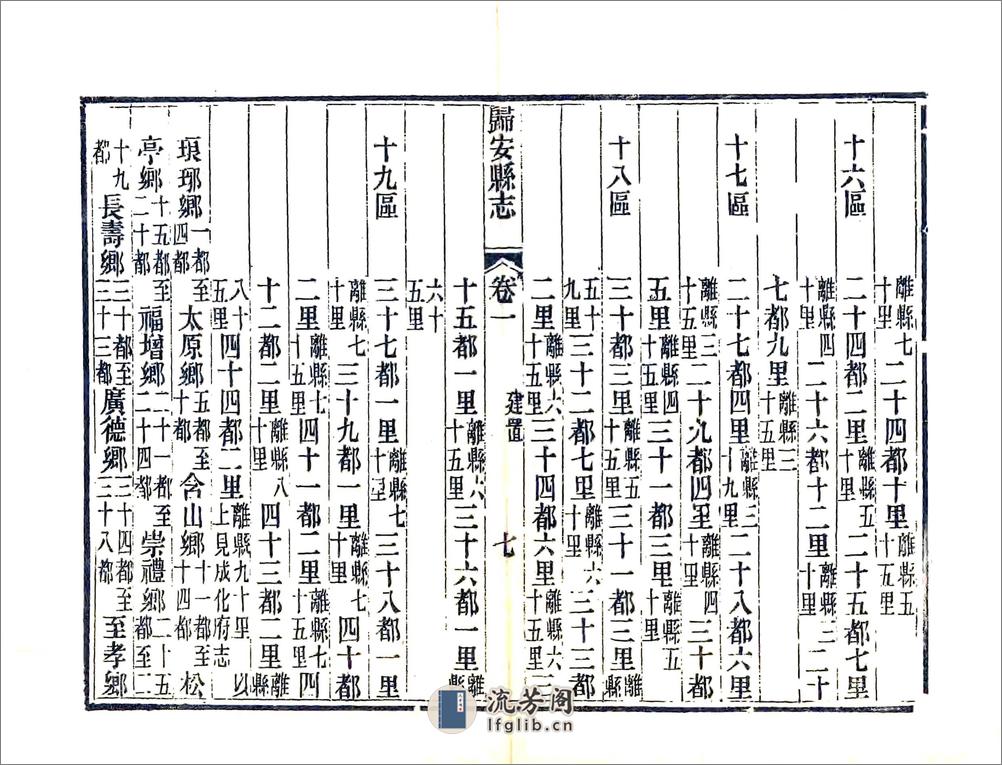 離縣七十里二十四都十里離縣五十五里
十六區 二十四都二里離縣五十里二十五都七里
離縣四十里二十六都十二里離縣三十里二十
七都九里離縣三十五里
十七區 二十七都四里離縣三十九里二十八都六里
離縣三十五里二十九都四里離縣四十里三十都
五里離縣四十五里三十一都三里離縣五十里
十八區 三十都三里離縣五十五里三十一都三里離縣
五十九里三十二都七里離縣六十里三十三都
二里離縣六十五里三十四都六里離縣六十五里三
歸安縣志 卷一 建置 七
十五都一里離縣六十五里三十六都一里離縣
六十五里
十九區 三十七都一里離縣七十里三十八都一里
離縣七十里三十九都一里離縣七十里四十都
二里離縣七十五里四十一都二里離縣七十五里四
十二都二里離縣八十里四十三都二里離縣
八十五里四十四都二里離縣九十里以上見成化府志
琅琊鄉一都至四都太原鄉五都至十都含山鄉十一都至十四都松
亭鄉十五都至二十都福增鄉二十一都至二十四都崇禮鄉二十五都至二
十九都長壽鄉三十都至三十三都廣德鄉三十四都至三十八都至孝鄉
流芳阁
lfglib.cn